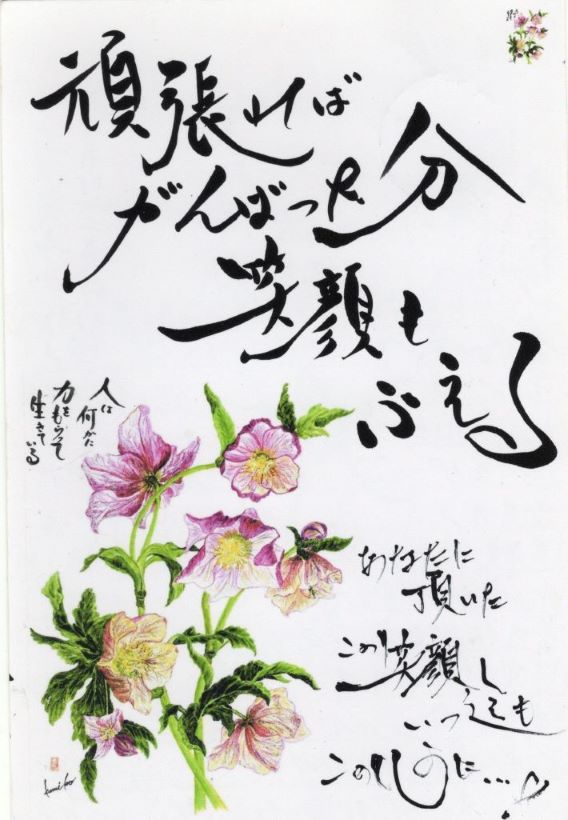 頑張れば
がんばった分
笑顔も
ふえる
人は
何かに
力をもらって
生きている
あなたに
頂いた
この笑顔
いつまでも
このように…